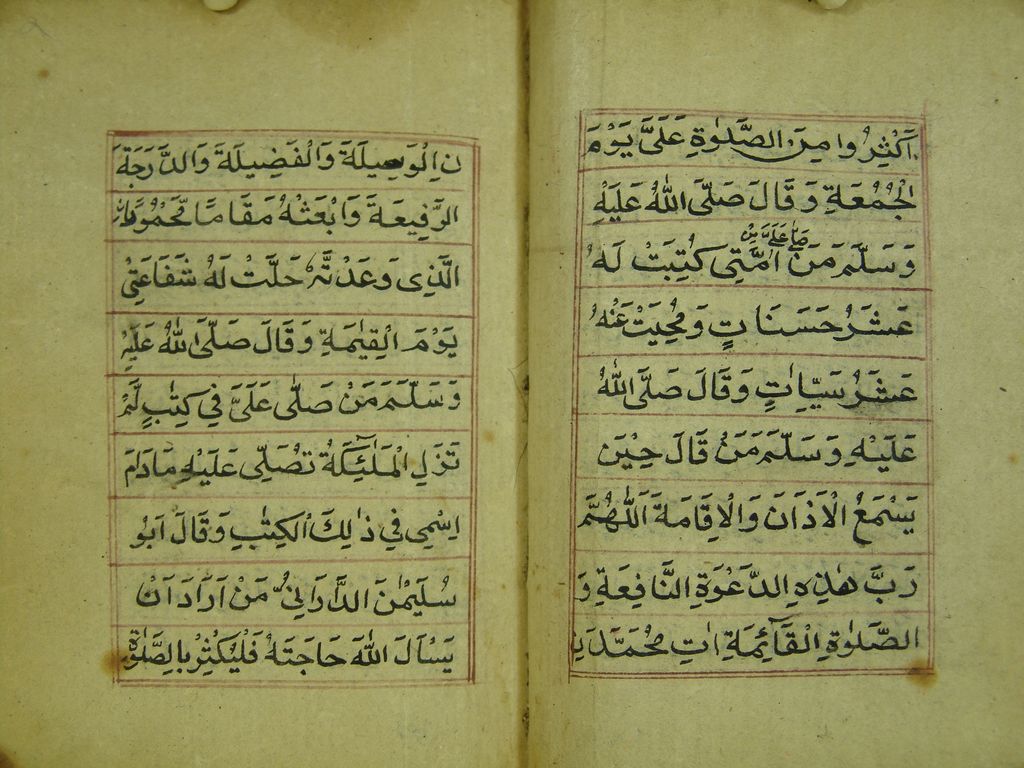 اَكْثِرُوا مِنَ الصَّلٰوةِ عَلَیَّ يَوْمَ
الْجُمُعَةِ وَقَالَ صَلَّی اللّٰهُ عَلَيْهِ
وَسَلَّمَ مَنْ صَلّٰی عَلَیَّ مِنْ اُمَّتِی كُتِبَتْ لَهُ
عَشَرُ حَسَنَاتٍ وَمُحِيَتْ عَنْهُ
عَشَرُ سَيِّاٰتٍ وَقَالَ صَلَّی اللّٰهُ
عَلَيْهِ وَسَلَّمَ مَنْ قَالَ حِيْنَ
يَسْمَعُ الْاَذَانَ وَالْاِقَامَةَ اَللّٰهُمَّ
رَبَّ هٰذِهِ الدَّعْوَةِ النَّافِعَةِ وَ
الصَّلٰوةِ الْقَآئِمَةِ اٰتِ مُحَمَّدَ
نِ الْوَسِيلَةَ وَالْفَضِيلَةَ وَالدَّرَجَةَ
الرَّفِيعَةَ وَابْعَثْهُ مَقَامًا مَّحْمُوْدًا
الَّذِی وَعَدْتَّهٗ حَلَّتْ لَهُ شَفَاعَتِیْ
يَوْمَ الْقِيٰمَةِ وَقَالَ صَلَّی اللّٰهُ عَلَيْهِ
وَسَلَّمَ مَنْ صَلّٰی عَلَیَّ فِی كِتٰبٍ لَّمْ
تَزَلِ الْمَلٰٓئِكَةُ تُصَلِّی عَلَيْهِ مَادَامَ
اِسْمِی فِی ذٰلِكَ الْكِتٰبِ وَقَالَ اَبُو
سُلَيْمٰنَ الدَّارَانِیُّ مَنْ اَرَادَ اَنْ
يَسْاَلَ اللّٰهَ حَاجَتَهُ فَلْيُكْثِرْ بِالصَّلٰوةِ